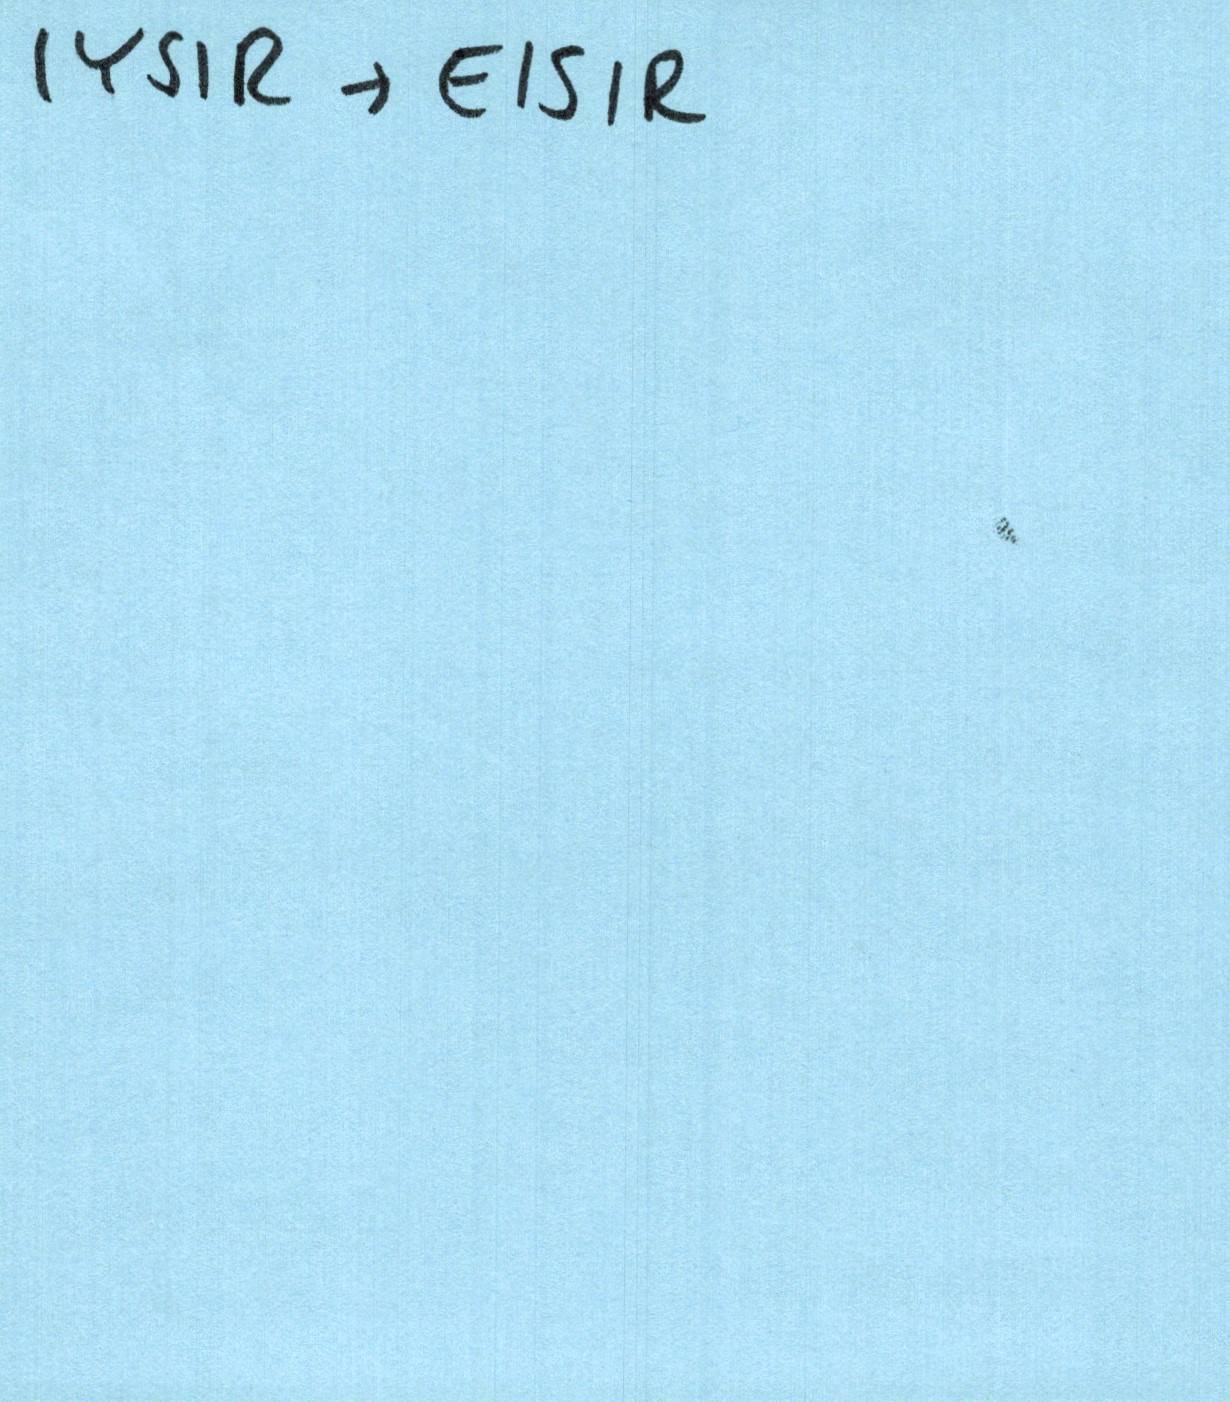 IYSIR → EISIR